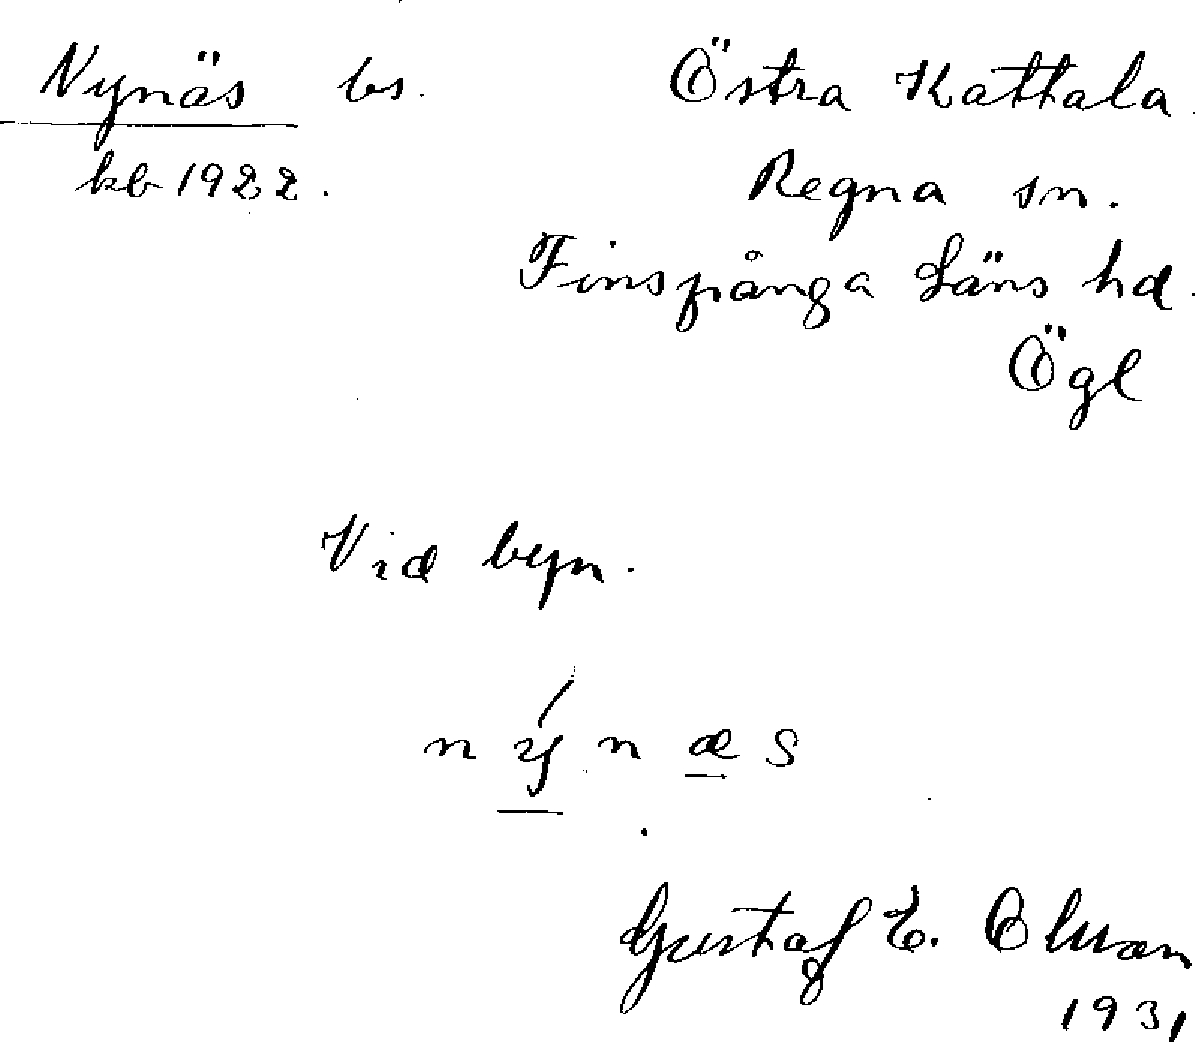 Nynäs bs. Östra Kattala.
kb 1922. Regna sn.
Finspånga Läns hd.
Ögl
Vid byn.
n ý n æ s
Gustaf E.
1931